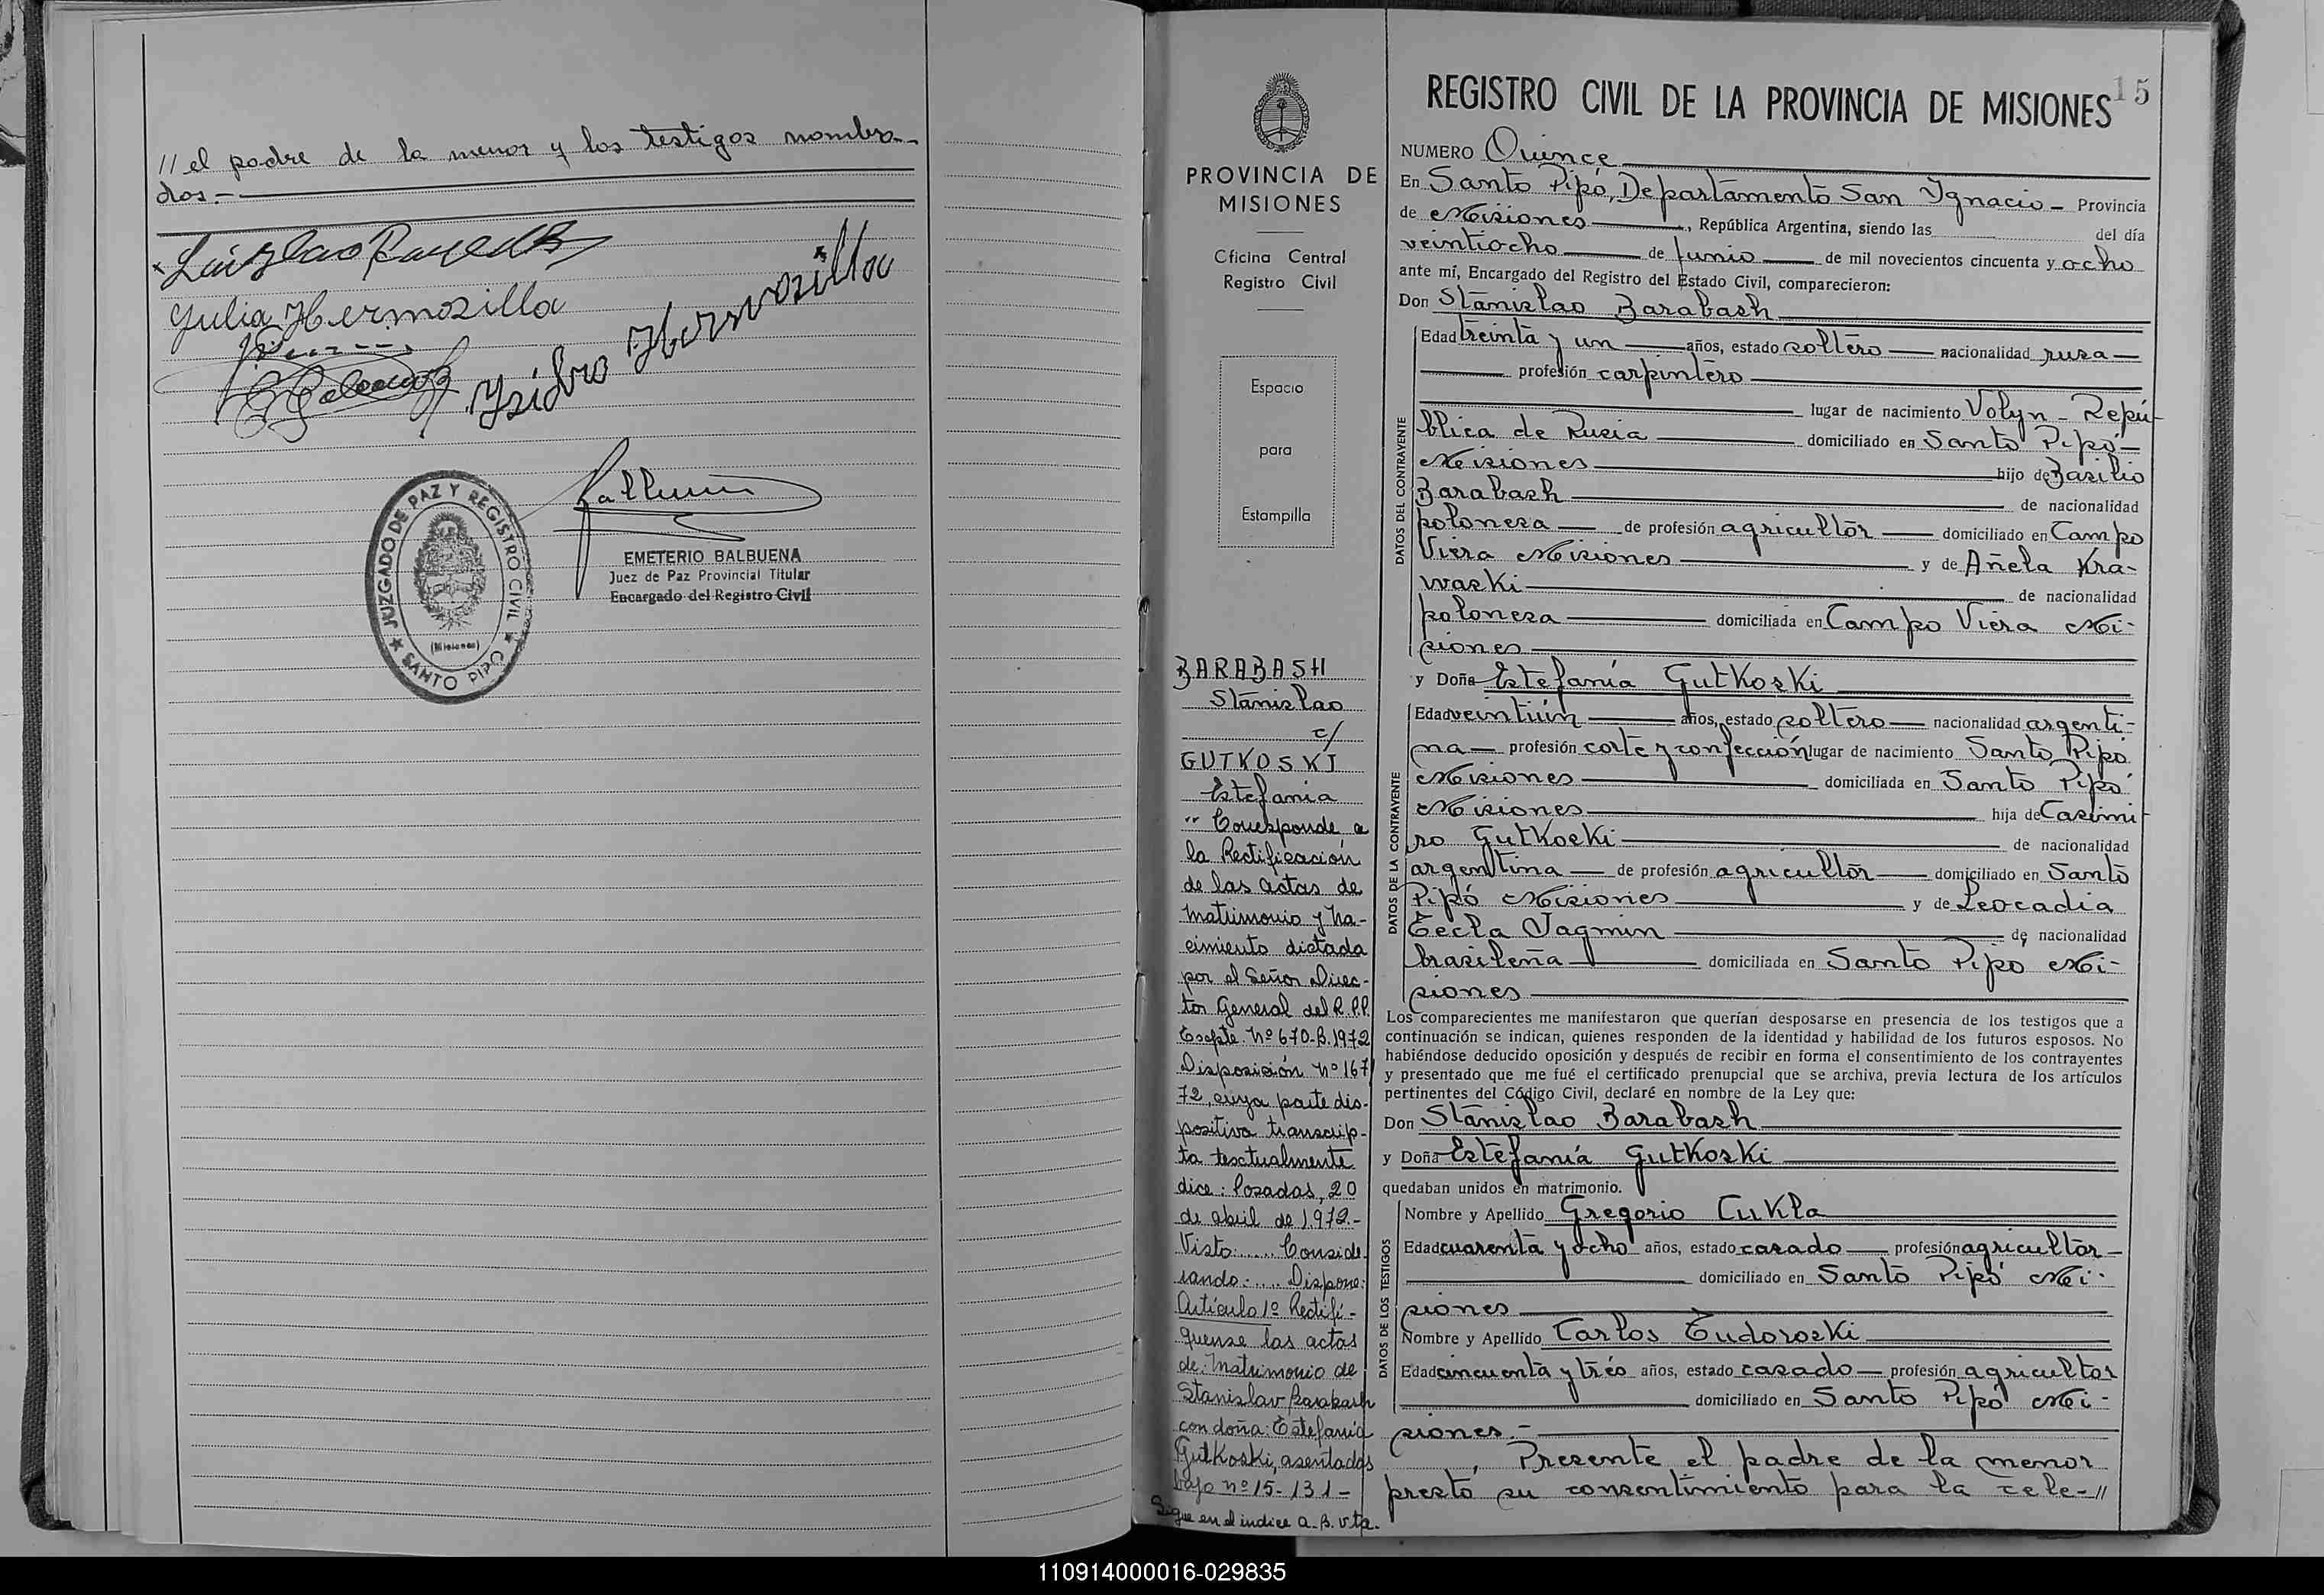 // el padre de la menor y los testigos nombra-
dos.-
Julia Hermosilla
Ysidro Hermosilla
JUZGADO DE PAZ Y REGISTRO CIVIL
(Misiones)
SANTO PIPO
EMETERIO BALBUENA
Juez de Paz Provincial Titular
Encargado del Registro Civil
PROVINCIA DE
MISIONES
Oficina Central
Registro Civil
Espacio
para
Estampilla
BARABASH
Stanislao
c/
GUTKOSKI
Estefania
" Corresponde a
la Rectificación
de las actas de
matrimonio y na-
cimiento dictada
por el Señor Direc-
tor General del R.P.P.
Expte. Nº 670-B.1972
Disposición Nº 167/
72, cuya parte dis-
positiva transcrip-
ta textualmente
dice: Posadas, 20
de abril de 1972.-
Visto:..... Conside-
rando:.... Dispone:
Artículo 1º Rectifí-
quense las actas
de: Matrimonio de
Stanislav Barabash
con doña: Estefanía
Gutkoski, asentadas
bajo nº 15- 131-
Sigue en el indice a. B. vta.
15
REGISTRO CIVIL DE LA PROVINCIA DE MISIONES
NUMERO Quince
En Santo Pipó, Departamento San Ygnacio - Provincia
de Misiones, República Argentina, siendo las del día
veintiocho de Junio de mil novecientos cincuenta y ocho
ante mí, Encargado del Registro del Estado Civil, comparecieron:
Don Stanislao Barabash
DATOS DEL CONTRAYENTE
Edad treinta y un años, estado soltero nacionalidad rusa
profesión carpintero
lugar de nacimiento Volyn - Repú-
blica de Rusia domiciliado en Santo Pipó-
Misiones hijo de Basilio
Barabash de nacionalidad
polonesa de profesión agricultor domiciliado en Campo
Viera Misiones y de Añela Kra-
waski de nacionalidad
polonesa domiciliada en Campo Viera Mi-
siones
y Doña Estefanía Gutkoski
DATOS DE LA CONTRAYENTE
Edad veintiún años, estado soltero nacionalidad argenti-
na profesión corte y confección lugar de nacimiento Santo Pipó
Misiones domiciliada en Santo Pipó
Misiones hija de Casimi-
ro Gutkoski de nacionalidad
argentina de profesión agricultor domiciliado en Santo
Pipó Misiones y de Leocadia
Tecla Jagmin de nacionalidad
brasileña domiciliada en Santo Pipo Mi-
siones
Los comparecientes me manifestaron que querían desposarse en presencia de los testigos que a
continuación se indican, quienes responden de la identidad y habilidad de los futuros esposos. No
habiéndose deducido oposición y después de recibir en forma el consentimiento de los contrayentes
y presentado que me fué el certificado prenupcial que se archiva, previa lectura de los artículos
pertinentes del Código Civil, declaré en nombre de la Ley que:
Don Stanislao Barabash
y Doña Estefanía Gutkoski
quedaban unidos en matrimonio.
DATOS DE LOS TESTIGOS
Nombre y Apellido Gregorio Cukla
Edad cuarenta y ocho años, estado casado profesión agricultor
domiciliado en Santo Pipó Mi-
siones
Nombre y Apellido Carlos Tudoroski
Edad cincuenta y trés años, estado casado profesión agricultor
domiciliado en Santo Pipó Mi-
siones.-
Presente el padre de la menor
prestó su consentimiento para la cele-//
110914000016-029835